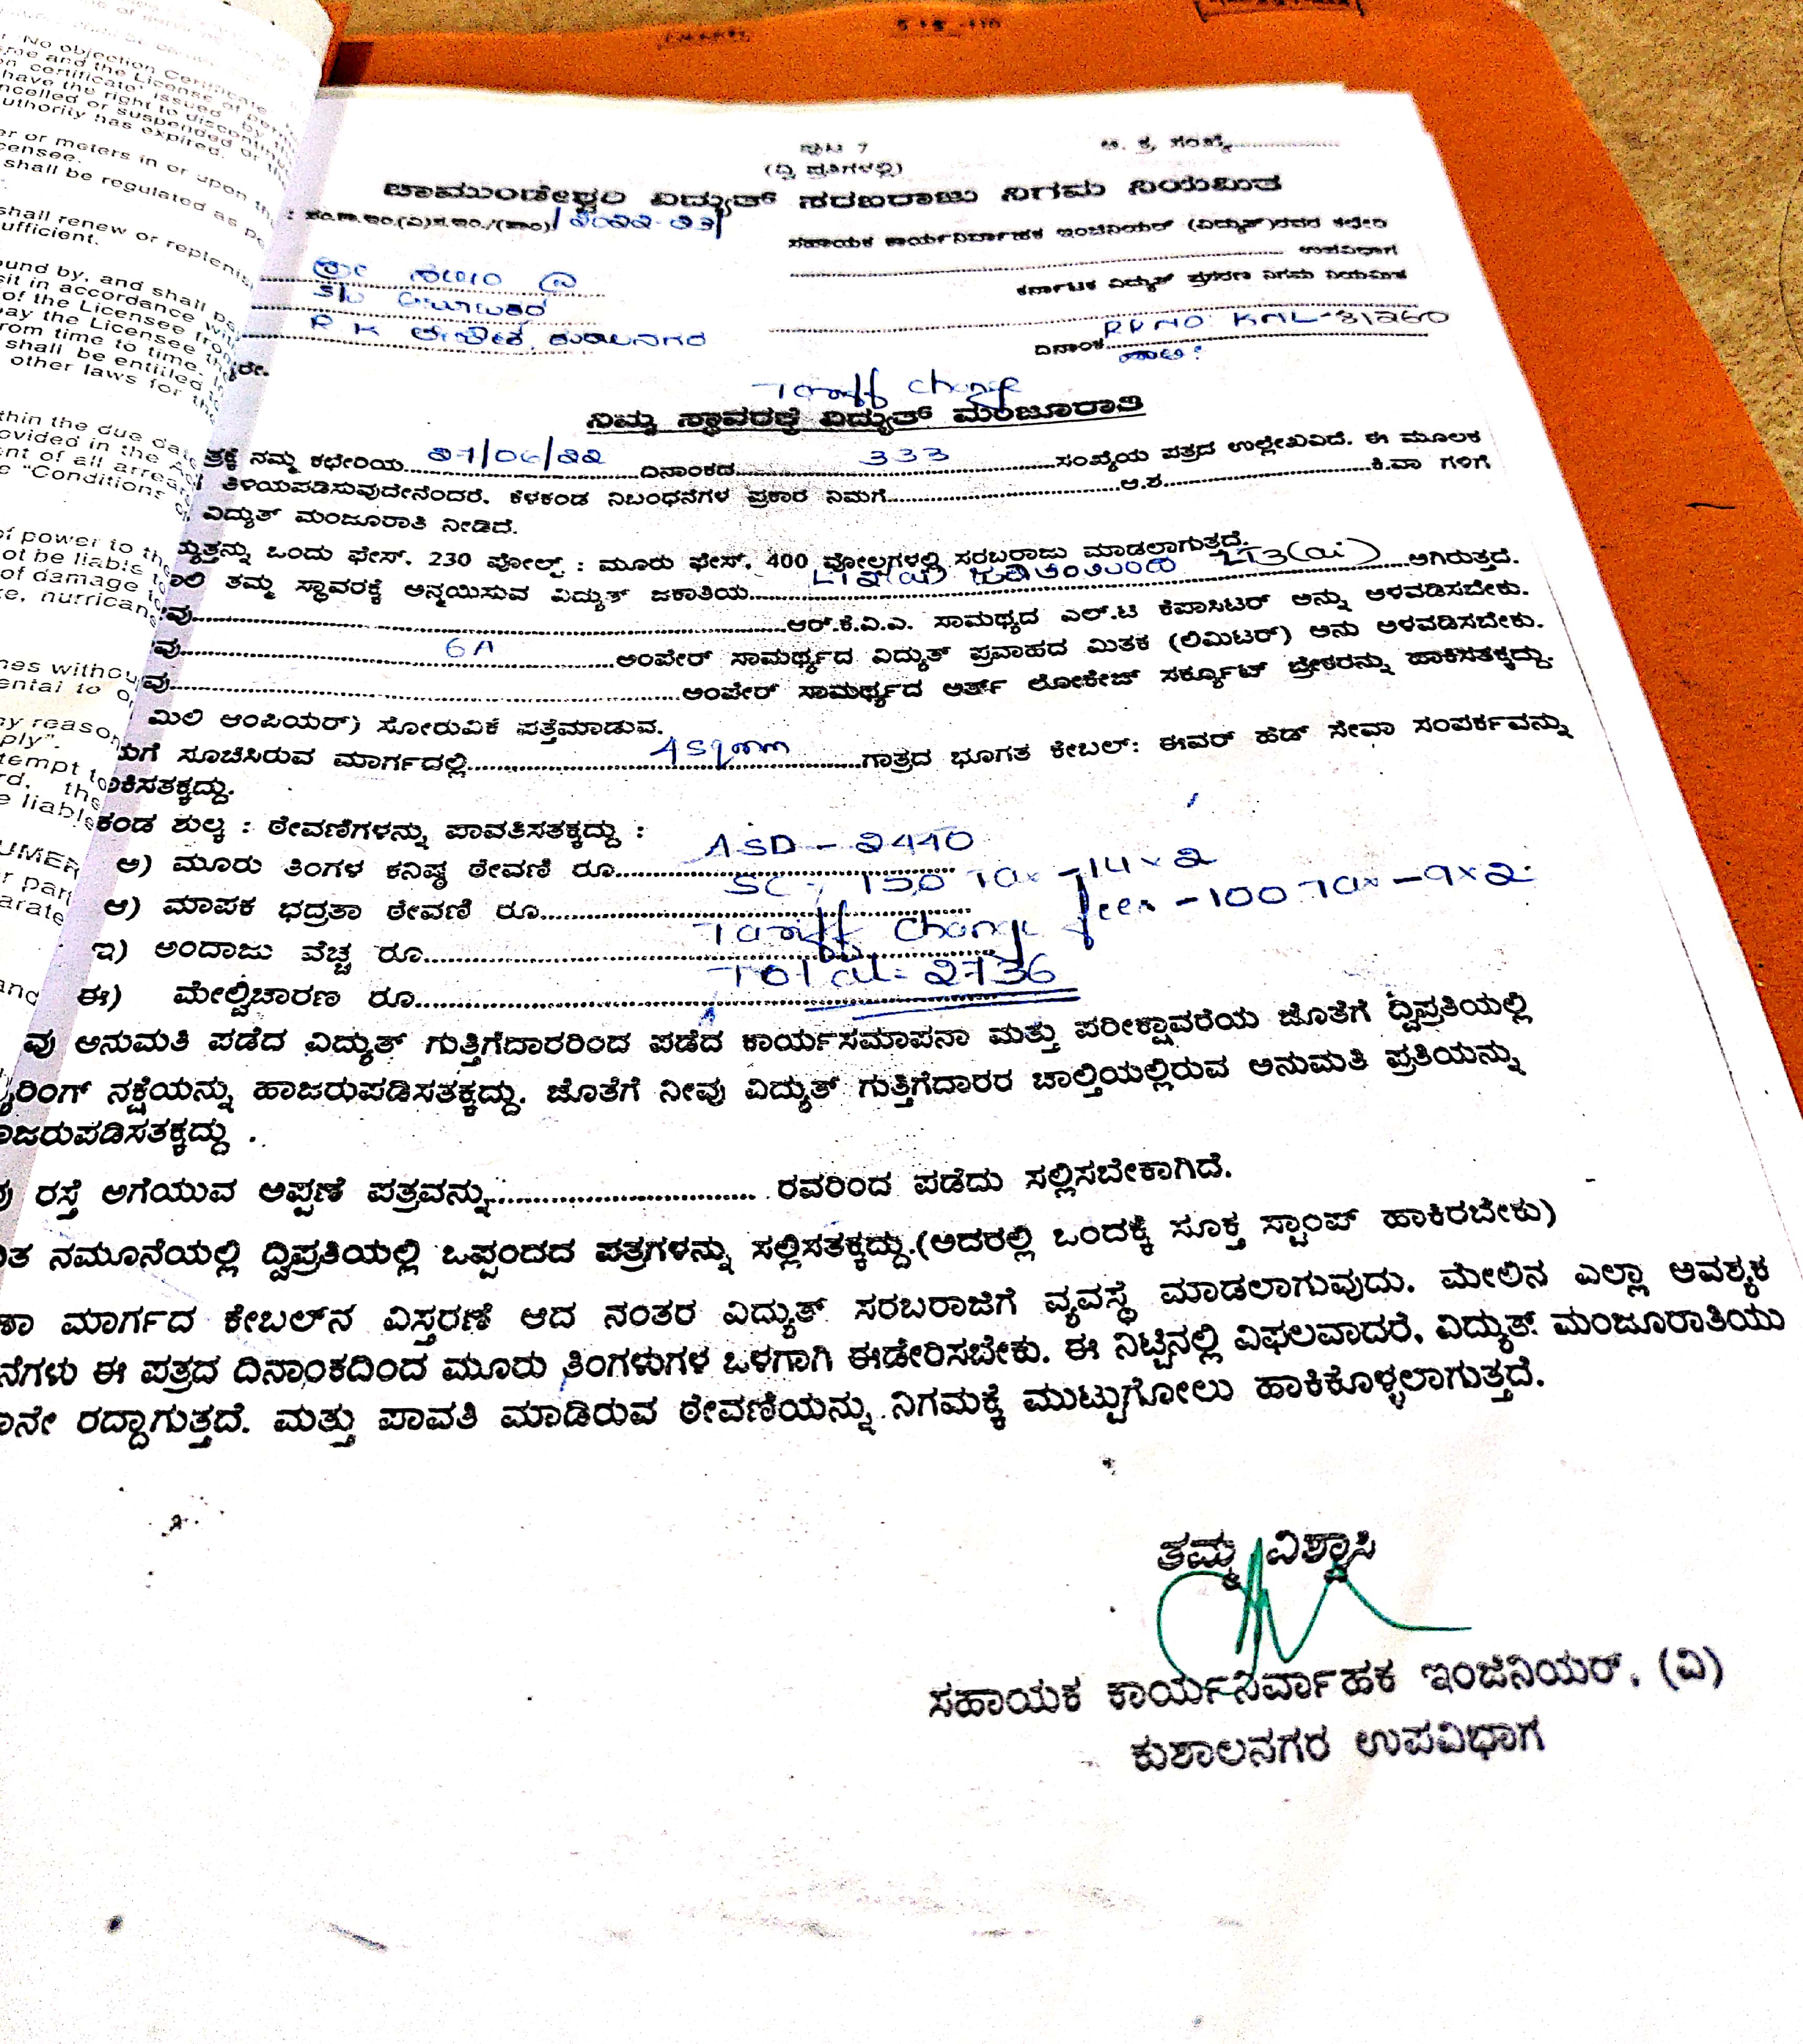 No objection Certificate
and the License of
certificate issued by
have the right to
or suspended or
authority has expired.
or meters in or upon the
shall be regulated as
shall renew or replenish
sufficient.
bound by, and shall
in accordance with
of the Licensee from
pay the Licensee
from time to time.
shall be entitled
other laws for the
within the due date
provided in the
of all arrears
"Conditions
of power to the
not be liable
of damage
without
reason
ply".
tempt to
liable
(ದ್ವಿ ಪ್ರತಿಗಳಲ್ಲಿ)
ಚಾಮುಂಡೇಶ್ವರಿ ವಿದ್ಯುತ್ ಸರಬರಾಜು ನಿಗಮ ನಿಯಮಿತ
2022-23/
ಸಹಾಯಕ ಕಾರ್ಯನಿರ್ವಾಹಕ ಇಂಜಿನಿಯರ್ (ವಿದ್ಯುತ್)ರವರ ಕಛೇರಿ
ಉಪವಿಭಾಗ
ಕರ್ನಾಟಕ ವಿದ್ಯುತ್ ಪ್ರಸರಣ ನಿಗಮ ನಿಯಮಿತ
RR NO: KNL-31260
ದಿನಾಂಕ
Tariff change
ನಿಮ್ಮ ಸ್ಥಾವರಕ್ಕೆ ವಿದ್ಯುತ್ ಮಂಜೂರಾತಿ
ತ್ರಕ್ಕೆ ನಮ್ಮ ಕಛೇರಿಯ 27/06/22 ದಿನಾಂಕದ 333 ಸಂಖ್ಯೆಯ ಪತ್ರದ ಉಲ್ಲೇಖವಿದೆ. ಈ ಮೂಲಕ
ತಿಳಿಯಪಡಿಸುವುದೇನೆಂದರೆ. ಕೆಳಕಂಡ ನಿಬಂಧನೆಗಳ ಪ್ರಕಾರ ನಿಮಗೆ ಅ.ಶ. ಕಿ.ವಾ ಗಳಿಗೆ
ವಿದ್ಯುತ್ ಮಂಜೂರಾತಿ ನೀಡಿದೆ.
ಒಂದು ಫೇಸ್. 230 ವೋಲ್ಟ್ : ಮೂರು ಫೇಸ್. 400 ವೋಲ್ಟಗಳಲ್ಲಿ ಸರಬರಾಜು ಮಾಡಲಾಗುತ್ತದೆ.
ತಮ್ಮ ಸ್ಥಾವರಕ್ಕೆ ಅನ್ವಯಿಸುವ ವಿದ್ಯುತ್ ಜಕಾತಿಯ LT3(ai) ಆಗಿರುತ್ತದೆ.
ವು ಆರ್.ಕೆ.ವಿ.ಎ. ಸಾಮಥ್ಯದ ಎಲ್.ಟಿ ಕೆಪಾಸಿಟರ್ ಅನ್ನು ಅಳವಡಿಸಬೇಕು.
ವು 6A ಅಂಪೇರ್ ಸಾಮರ್ಥ್ಯದ ವಿದ್ಯುತ್ ಪ್ರವಾಹದ ಮಿತಕ (ಲಿಮಿಟರ್) ಅನು ಅಳವಡಿಸಬೇಕು.
ವು ಅಂಪೇರ್ ಸಾಮರ್ಥ್ಯದ ಅರ್ತ್ ಲೋಕೇಜ್ ಸರ್ಕ್ಯೂಟ್ ಬ್ರೇಕರನ್ನು ಹಾಕಿಸತಕ್ಕದ್ದು.
ಮಿಲಿ ಆಂಪಿಯರ್) ಸೋರುವಿಕೆ ಪತ್ತೆಮಾಡುವ.
ಸೂಚಿಸಿರುವ ಮಾರ್ಗದಲ್ಲಿ 4Sqmm ಗಾತ್ರದ ಭೂಗತ ಕೇಬಲ್: ಈವರ್ ಹೆಡ್ ಸೇವಾ ಸಂಪರ್ಕವನ್ನು
ಕಿಸತಕ್ಕದ್ದು.
ಕಂಡ ಶುಲ್ಕ : ಠೇವಣಿಗಳನ್ನು ಪಾವತಿಸತಕ್ಕದ್ದು :
ಅ) ಮೂರು ತಿಂಗಳ ಕನಿಷ್ಠ ಠೇವಣಿ ರೂ. ASD - 2440
ಆ) ಮಾಪಕ ಭದ್ರತಾ ಠೇವಣಿ ರೂ. SC - 150 Tax - 14 x 2
ಇ) ಅಂದಾಜು ವೆಚ್ಚ ರೂ. Tariff Change fees - 100 Tax - 9 x 2
ಈ) ಮೇಲ್ವಿಚಾರಣ ರೂ. Total = 2736
ವು ಅನುಮತಿ ಪಡೆದ ವಿದ್ಯುತ್ ಗುತ್ತಿಗೆದಾರರಿಂದ ಪಡೆದ ಕಾರ್ಯಸಮಾಪನಾ ಮತ್ತು ಪರೀಕ್ಷಾವರೆಯ ಜೊತೆಗೆ ದ್ವಿಪ್ರತಿಯಲ್ಲಿ
ರಿಂಗ್ ನಕ್ಷೆಯನ್ನು ಹಾಜರುಪಡಿಸತಕ್ಕದ್ದು. ಜೊತೆಗೆ ನೀವು ವಿದ್ಯುತ್ ಗುತ್ತಿಗೆದಾರರ ಚಾಲ್ತಿಯಲ್ಲಿರುವ ಅನುಮತಿ ಪ್ರತಿಯನ್ನು
ಜರುಪಡಿಸತಕ್ಕದ್ದು .
ರಸ್ತೆ ಅಗೆಯುವ ಅಪ್ಪಣೆ ಪತ್ರವನ್ನು ರವರಿಂದ ಪಡೆದು ಸಲ್ಲಿಸಬೇಕಾಗಿದೆ.
ತ ನಮೂನೆಯಲ್ಲಿ ದ್ವಿಪ್ರತಿಯಲ್ಲಿ ಒಪ್ಪಂದದ ಪತ್ರಗಳನ್ನು ಸಲ್ಲಿಸತಕ್ಕದ್ದು.(ಅದರಲ್ಲಿ ಒಂದಕ್ಕೆ ಸೂಕ್ತ ಸ್ಟಾಂಪ್ ಹಾಕಿರಬೇಕು)
ಮಾರ್ಗದ ಕೇಬಲ್‌ನ ವಿಸ್ತರಣೆ ಆದ ನಂತರ ವಿದ್ಯುತ್ ಸರಬರಾಜಿಗೆ ವ್ಯವಸ್ಥೆ ಮಾಡಲಾಗುವುದು. ಮೇಲಿನ ಎಲ್ಲಾ ಅವಶ್ಯಕ
ನೆಗಳು ಈ ಪತ್ರದ ದಿನಾಂಕದಿಂದ ಮೂರು ತಿಂಗಳುಗಳ ಒಳಗಾಗಿ ಈಡೇರಿಸಬೇಕು. ಈ ನಿಟ್ಟಿನಲ್ಲಿ ವಿಫಲವಾದರೆ, ವಿದ್ಯುತ್ ಮಂಜೂರಾತಿಯು
ನೇ ರದ್ದಾಗುತ್ತದೆ. ಮತ್ತು ಪಾವತಿ ಮಾಡಿರುವ ಠೇವಣಿಯನ್ನು ನಿಗಮಕ್ಕೆ ಮುಟ್ಟುಗೋಲು ಹಾಕಿಕೊಳ್ಳಲಾಗುತ್ತದೆ.
ತಮ್ಮ ವಿಶ್ವಾಸಿ
ಸಹಾಯಕ ಕಾರ್ಯನಿರ್ವಾಹಕ ಇಂಜಿನಿಯರ್. (ವಿ)
ಕುಶಾಲನಗರ ಉಪವಿಭಾಗ